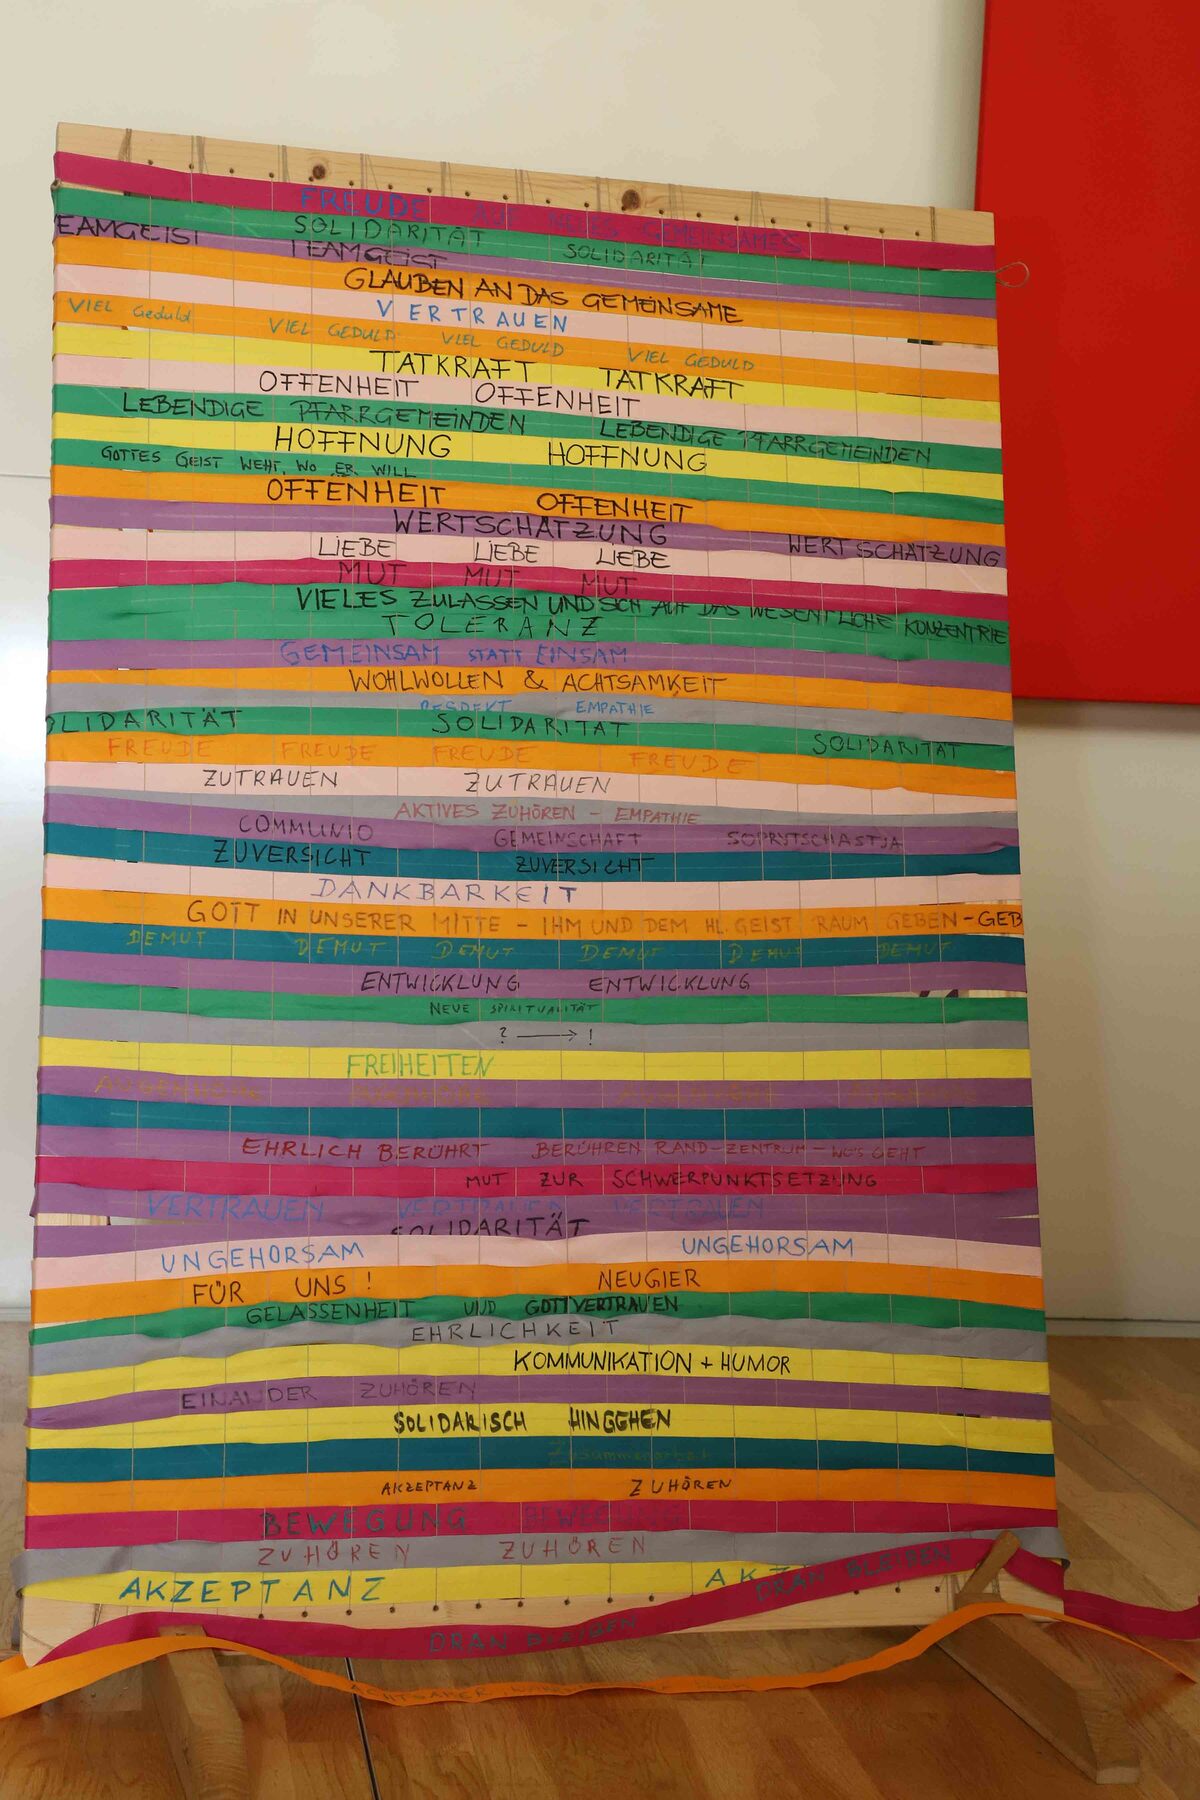 FREUDE AUF NEUES GEMEINSAMES
SOLIDARITÄT SOLIDARITÄT
TEAMGEIST TEAMGEIST
GLAUBEN AN DAS GEMEINSAME
VERTRAUEN
VIEL Geduld VIEL GEDULD VIEL GEDULD VIEL GEDULD
TATKRAFT TATKRAFT
OFFENHEIT OFFENHEIT
LEBENDIGE PFARRGEMEINDEN LEBENDIGE PFARRGEMEINDEN
HOFFNUNG HOFFNUNG
GOTTES GEIST WEHT, WO ER WILL
OFFENHEIT OFFENHEIT
WERTSCHÄTZUNG WERTSCHÄTZUNG
LIEBE LIEBE LIEBE
MUT MUT MUT
VIELES ZULASSEN UND SICH AUF DAS WESENTLICHE KONZENTRIE
TOLERANZ
GEMEINSAM STATT EINSAM
WOHLWOLLEN & ACHTSAMKEIT
RESPEKT EMPATHIE
OLIDARITÄT SOLIDARITÄT SOLIDARITÄT
FREUDE FREUDE FREUDE FREUDE
ZUTRAUEN ZUTRAUEN
AKTIVES ZUHÖREN - EMPATHIE
COMMUNIO GEMEINSCHAFT SOPRITSCHASTJA
ZUVERSICHT ZUVERSICHT
DANKBARKEIT
GOTT IN UNSERER MITTE - IHM UND DEM HL. GEIST RAUM GEBEN - GEB
DEMUT DEMUT DEMUT DEMUT DEMUT DEMUT
ENTWICKLUNG ENTWICKLUNG
NEUE SPIRITUALITÄT
? → !
FREIHEITEN
AUGENHÖHE AUGENHÖHE AUGENHÖHE AUGENHÖHE
EHRLICH BERÜHRT BERÜHREN RAND-ZENTRUM - WO'S GEHT
MUT ZUR SCHWERPUNKTSETZUNG
VERTRAUEN VERTRAUEN VERTRAUEN
SOLIDARITÄT
UNGEHORSAM UNGEHORSAM
FÜR UNS! NEUGIER
GELASSENHEIT UND GOTTVERTRAUEN
EHRLICHKEIT
KOMMUNIKATION + HUMOR
EINANDER ZUHÖREN
SOLIDARISCH HINGEHEN
Zusammenarbeit
AKZEPTANZ ZUHÖREN
BEWEGUNG BEWEGUNG
ZUHÖREN ZUHÖREN
AKZEPTANZ AKZ
DRAN BLEIBEN DRAN BLEIBEN
ACHTSAMER